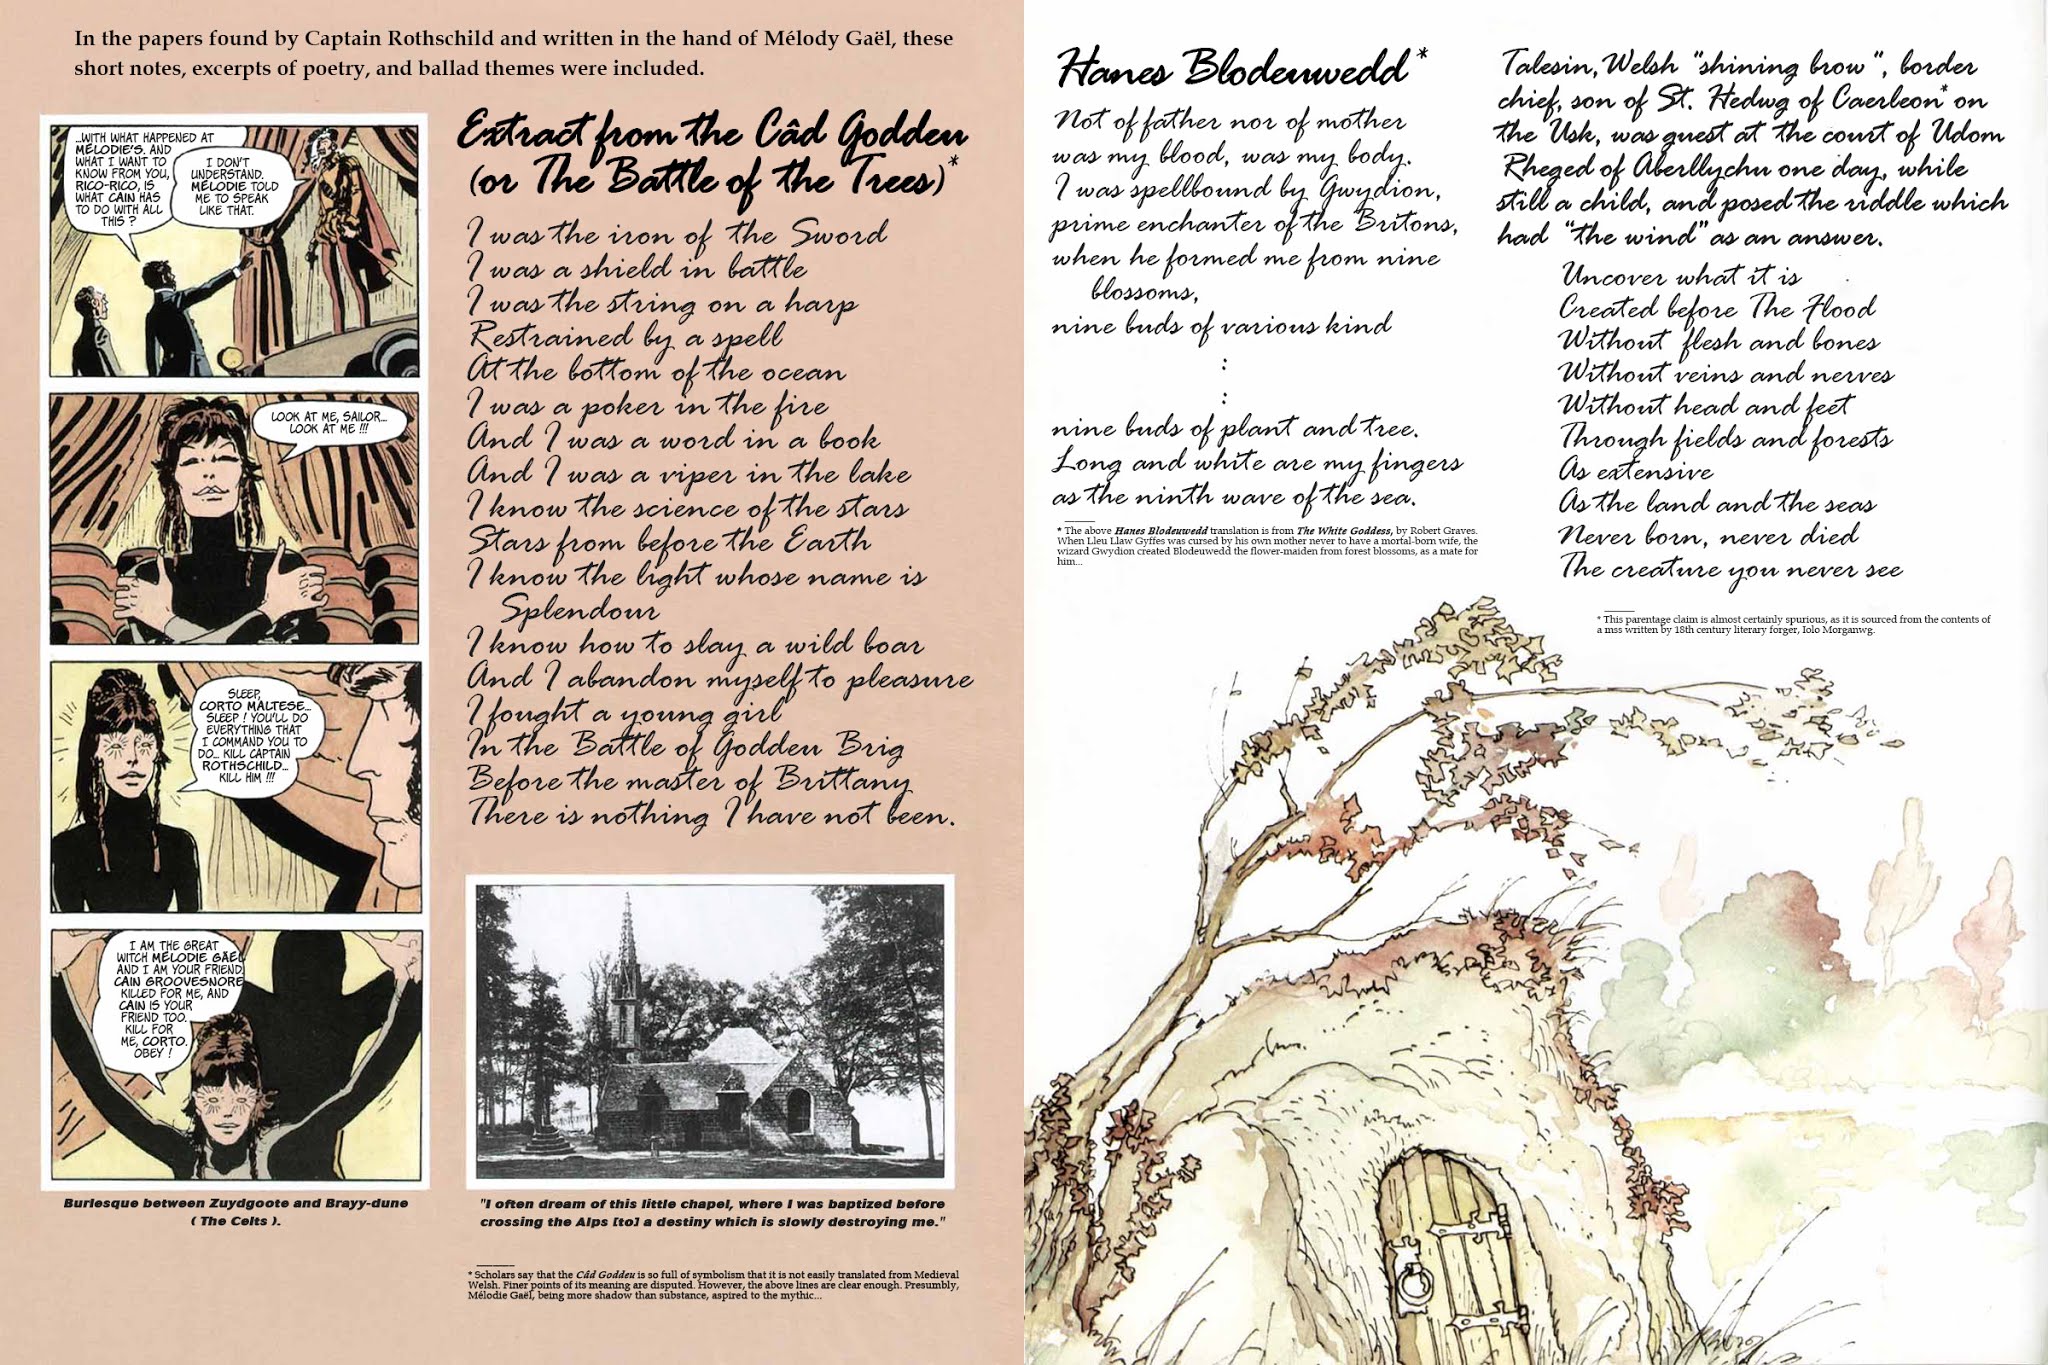 In the papers found by Captain Rothschild and written in the hand of Mélody Gaël, these
short notes, excerpts of poetry, and ballad themes were included.
...WITH WHAT HAPPENED AT
MÉLODIE'S. AND
WHAT I WANT TO
KNOW FROM YOU,
RICO-RICO, IS
WHAT CAIN HAS
TO DO WITH ALL
THIS ?
I DON'T
UNDERSTAND.
MÉLODIE TOLD
ME TO SPEAK
LIKE THAT.
LOOK AT ME, SAILOR...
LOOK AT ME !!!
SLEEP,
CORTO MALTESE...
SLEEP ! YOU'LL DO
EVERYTHING THAT
I COMMAND YOU TO
DO... KILL CAPTAIN
ROTHSCHILD...
KILL HIM !!!
I AM THE GREAT
WITCH MÉLODIE GÄEL
AND I AM YOUR FRIEND.
CAIN GROOVESNORE
KILLED FOR ME, AND
CAIN IS YOUR
FRIEND TOO.
KILL FOR
ME, CORTO.
OBEY !
Burlesque between Zuydgoote and Brayy-dune
( The Celts ).
Extract from the Câd Goddeu
(or The Battle of the Trees)*
I was the iron of the Sword
I was a shield in battle
I was the string on a harp
Restrained by a spell
At the bottom of the ocean
I was a poker in the fire
And I was a word in a book
And I was a viper in the lake
I know the science of the stars
Stars from before the Earth
I know the light whose name is
Splendour
I know how to slay a wild boar
And I abandon myself to pleasure
I fought a young girl
In the Battle of Goddeu Brig
Before the master of Brittany
There is nothing I have not been.
"I often dream of this little chapel, where I was baptized before
crossing the Alps [to] a destiny which is slowly destroying me."
* Scholars say that the Câd Goddeu is so full of symbolism that it is not easily translated from Medieval
Welsh. Finer points of its meaning are disputed. However, the above lines are clear enough. Presumbly,
Mélodie Gaël, being more shadow than substance, aspired to the mythic...
Hanes Blodeuwedd*
Not of father nor of mother
was my blood, was my body.
I was spellbound by Gwydion,
prime enchanter of the Britons,
when he formed me from nine
blossoms,
nine buds of various kind
:
:
nine buds of plant and tree.
Long and white are my fingers
as the ninth wave of the sea.
* The above Hanes Blodeuwedd translation is from The White Goddess, by Robert Graves.
When Lleu Llaw Gyffes was cursed by his own mother never to have a mortal-born wife, the
wizard Gwydion created Blodeuwedd the flower-maiden from forest blossoms, as a mate for
him...
Talesin, Welsh "shining brow", border
chief, son of St. Hedwg of Caerleon* on
the Usk, was guest at the court of Udom
Rheged of Aberllychu one day, while
still a child, and posed the riddle which
had "the wind" as an answer.
Uncover what it is
Created before The Flood
Without flesh and bones
Without veins and nerves
Without head and feet
Through fields and forests
As extensive
As the land and the seas
Never born, never died
The creature you never see
* This parentage claim is almost certainly spurious, as it is sourced from the contents of
a mss written by 18th century literary forger, Iolo Morganwg.